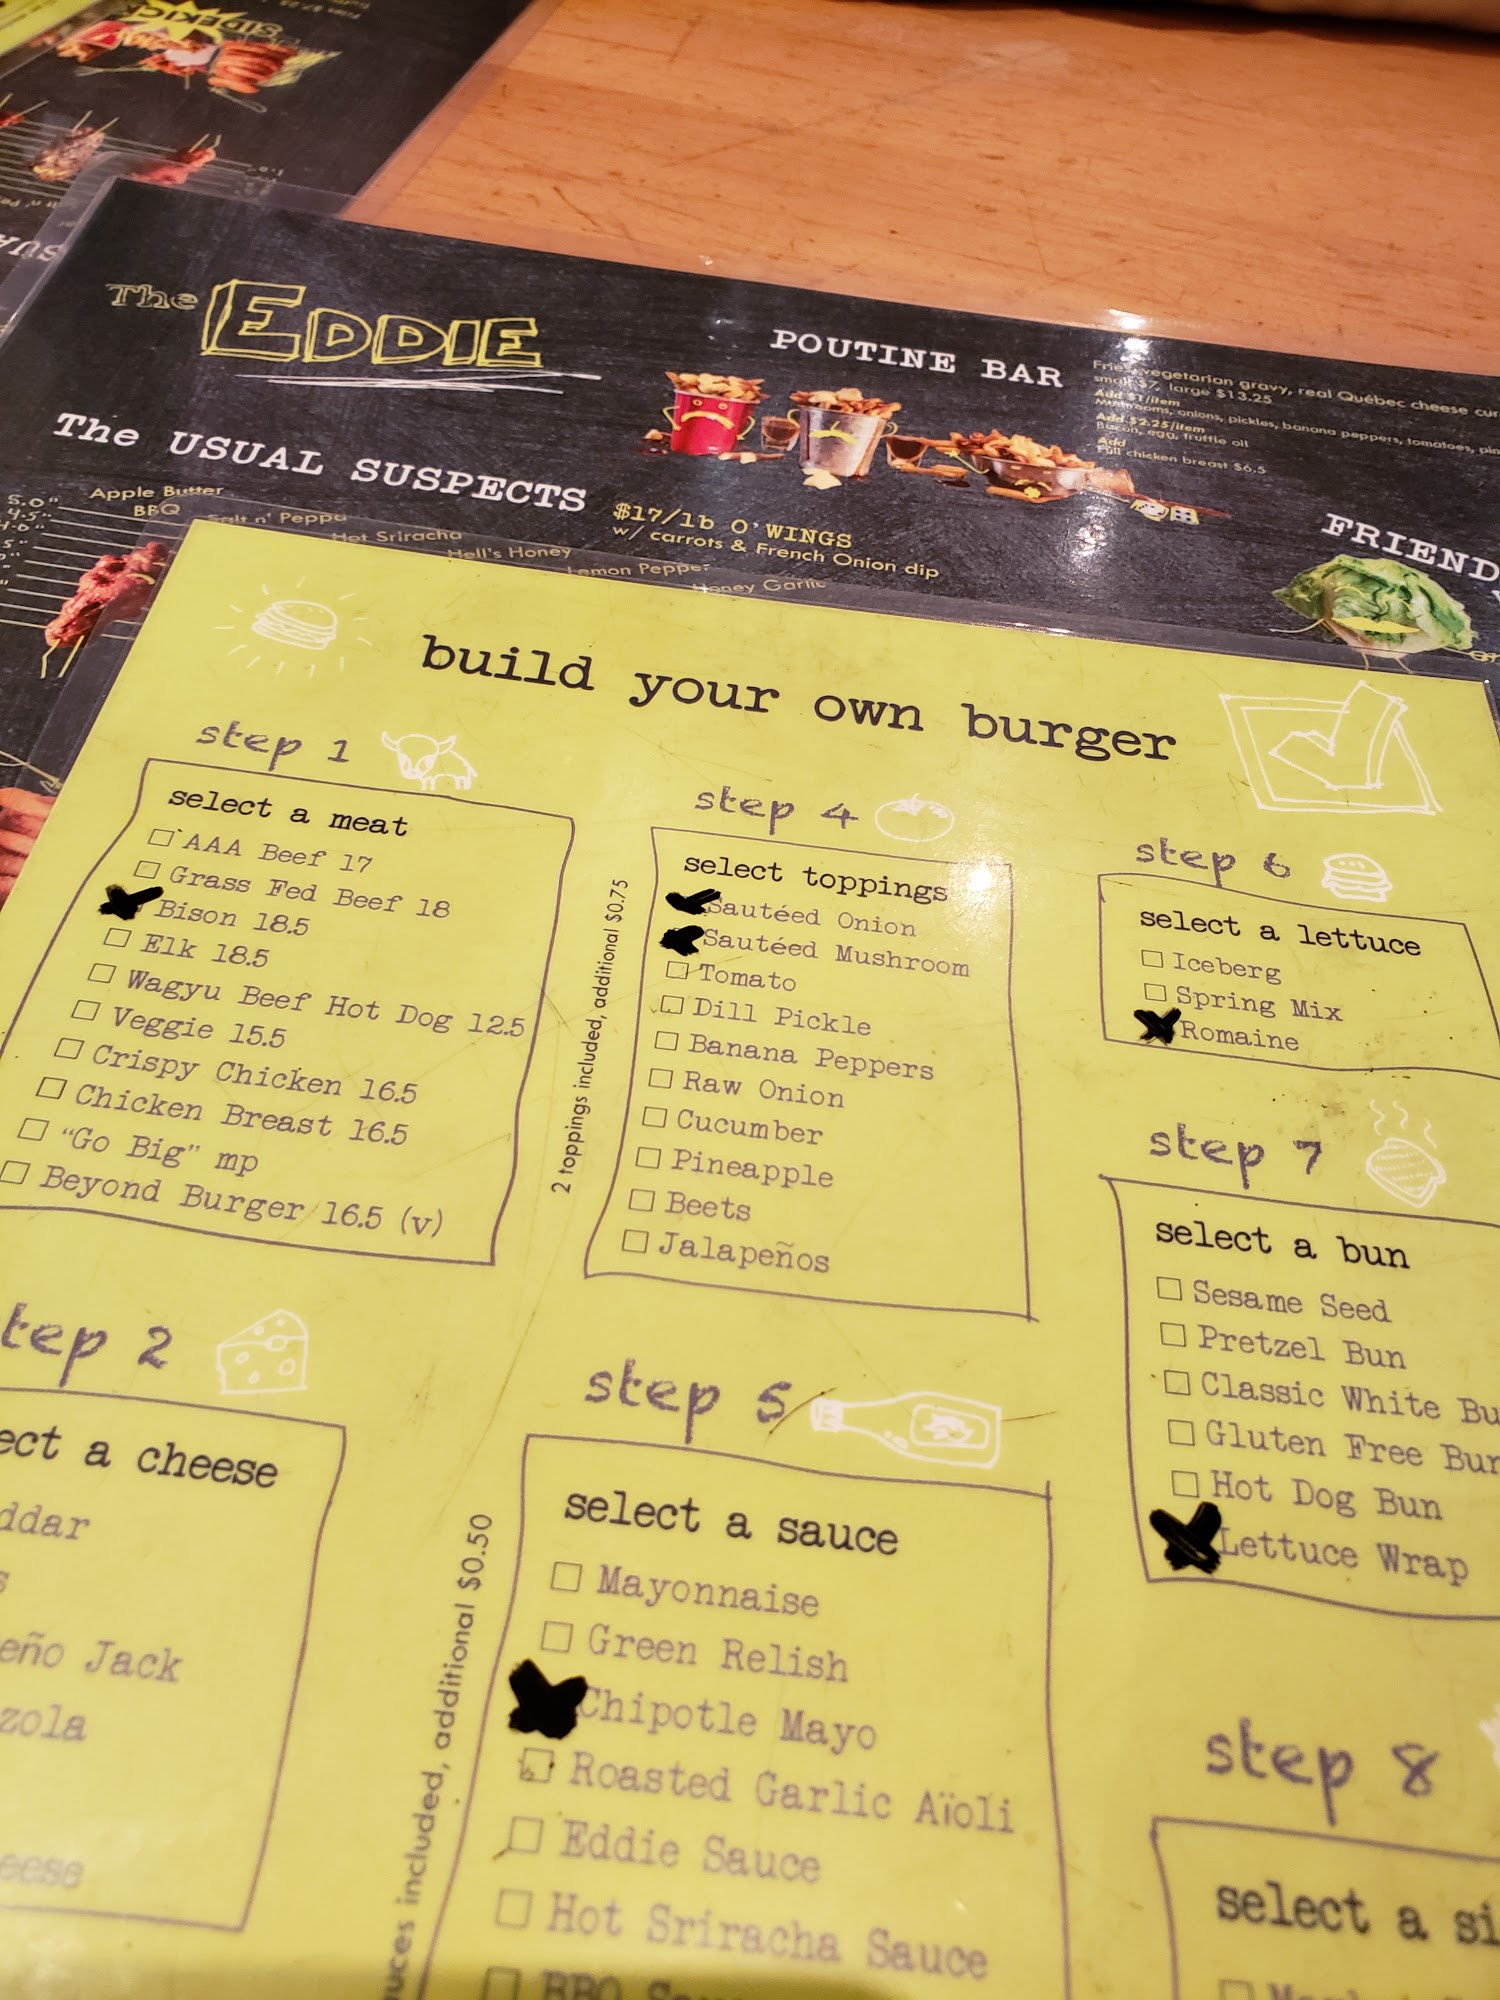 SIDEKICK
The EDDIE
POUTINE BAR
Fries, vegetarian gravy, real Québec cheese cur
small $7, large $13.25
Add $1/item
Mushrooms, onions, pickles, banana peppers, tomatoes, pin
Add $2.25/item
Bacon, egg, truffle oil
Add
Full chicken breast $6.5
The USUAL SUSPECTS
$17/lb O'WINGS
w/ carrots & French Onion dip
FRIEND
Apple Butter
BBQ
Salt n' Peppa
Hot Sriracha
Hell's Honey
Lemon Pepper
Honey Garlic
build your own burger
step 1
select a meat
AAA Beef 17
Grass Fed Beef 18
Bison 18.5
Elk 18.5
Wagyu Beef Hot Dog 12.5
Veggie 15.5
Crispy Chicken 16.5
Chicken Breast 16.5
"Go Big" mp
Beyond Burger 16.5 (v)
tep 2
ect a cheese
ddar
s
eño Jack
zola
eese
step 4
select toppings
2 toppings included, additional $0.75
Sautéed Onion
Sautéed Mushroom
Tomato
Dill Pickle
Banana Peppers
Raw Onion
Cucumber
Pineapple
Beets
Jalapeños
step 5
select a sauce
uces included, additional $0.50
Mayonnaise
Green Relish
Chipotle Mayo
Roasted Garlic Aïoli
Eddie Sauce
Hot Sriracha Sauce
BBQ Sau
step 6
select a lettuce
Iceberg
Spring Mix
Romaine
step 7
select a bun
Sesame Seed
Pretzel Bun
Classic White Bu
Gluten Free Bun
Hot Dog Bun
Lettuce Wrap
step 8
select a si